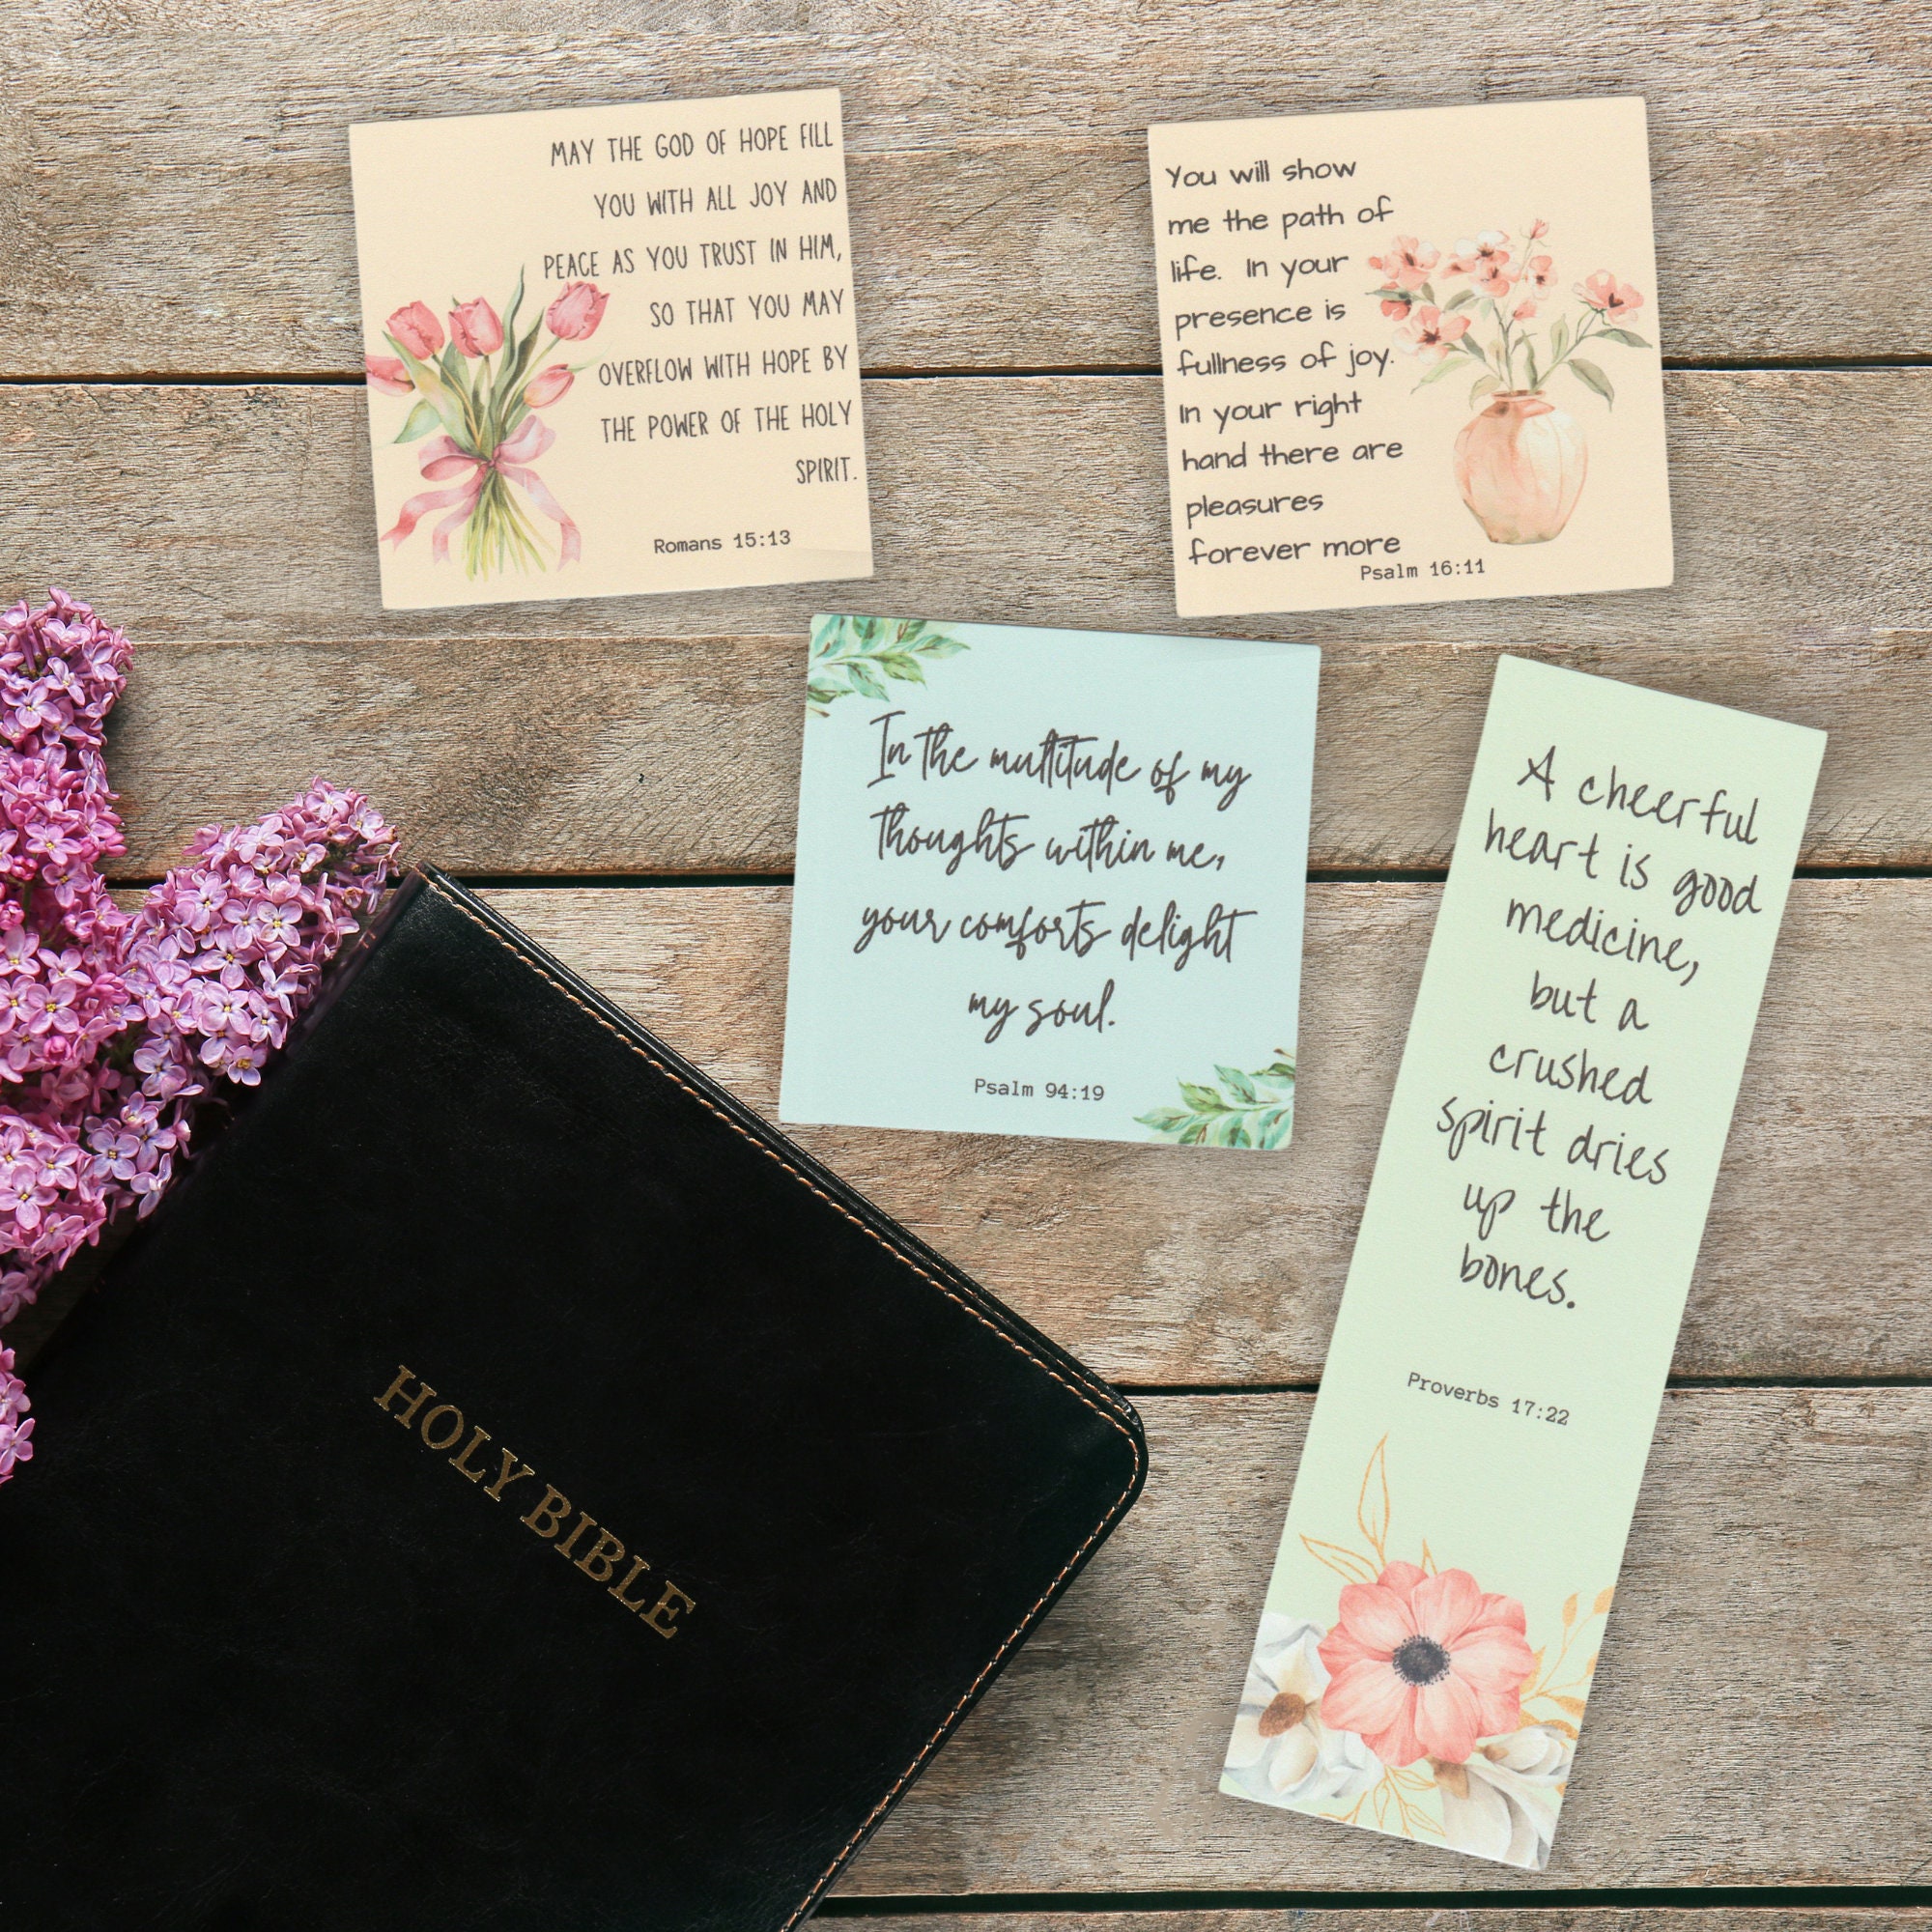 MAY THE GOD OF HOPE FILL
YOU WITH ALL JOY AND
PEACE AS YOU TRUST IN HIM,
SO THAT YOU MAY
OVERFLOW WITH HOPE BY
THE POWER OF THE HOLY
SPIRIT.
Romans 15:13
You will show
me the path of
life. In your
presence is
fullness of joy.
In your right
hand there are
pleasures
forever more
Psalm 16:11
In the multitude of my
thoughts within me,
your comforts delight
my soul.
Psalm 94:19
A cheerful
heart is good
medicine,
but a
crushed
spirit dries
up the
bones.
Proverbs 17:22
HOLY BIBLE